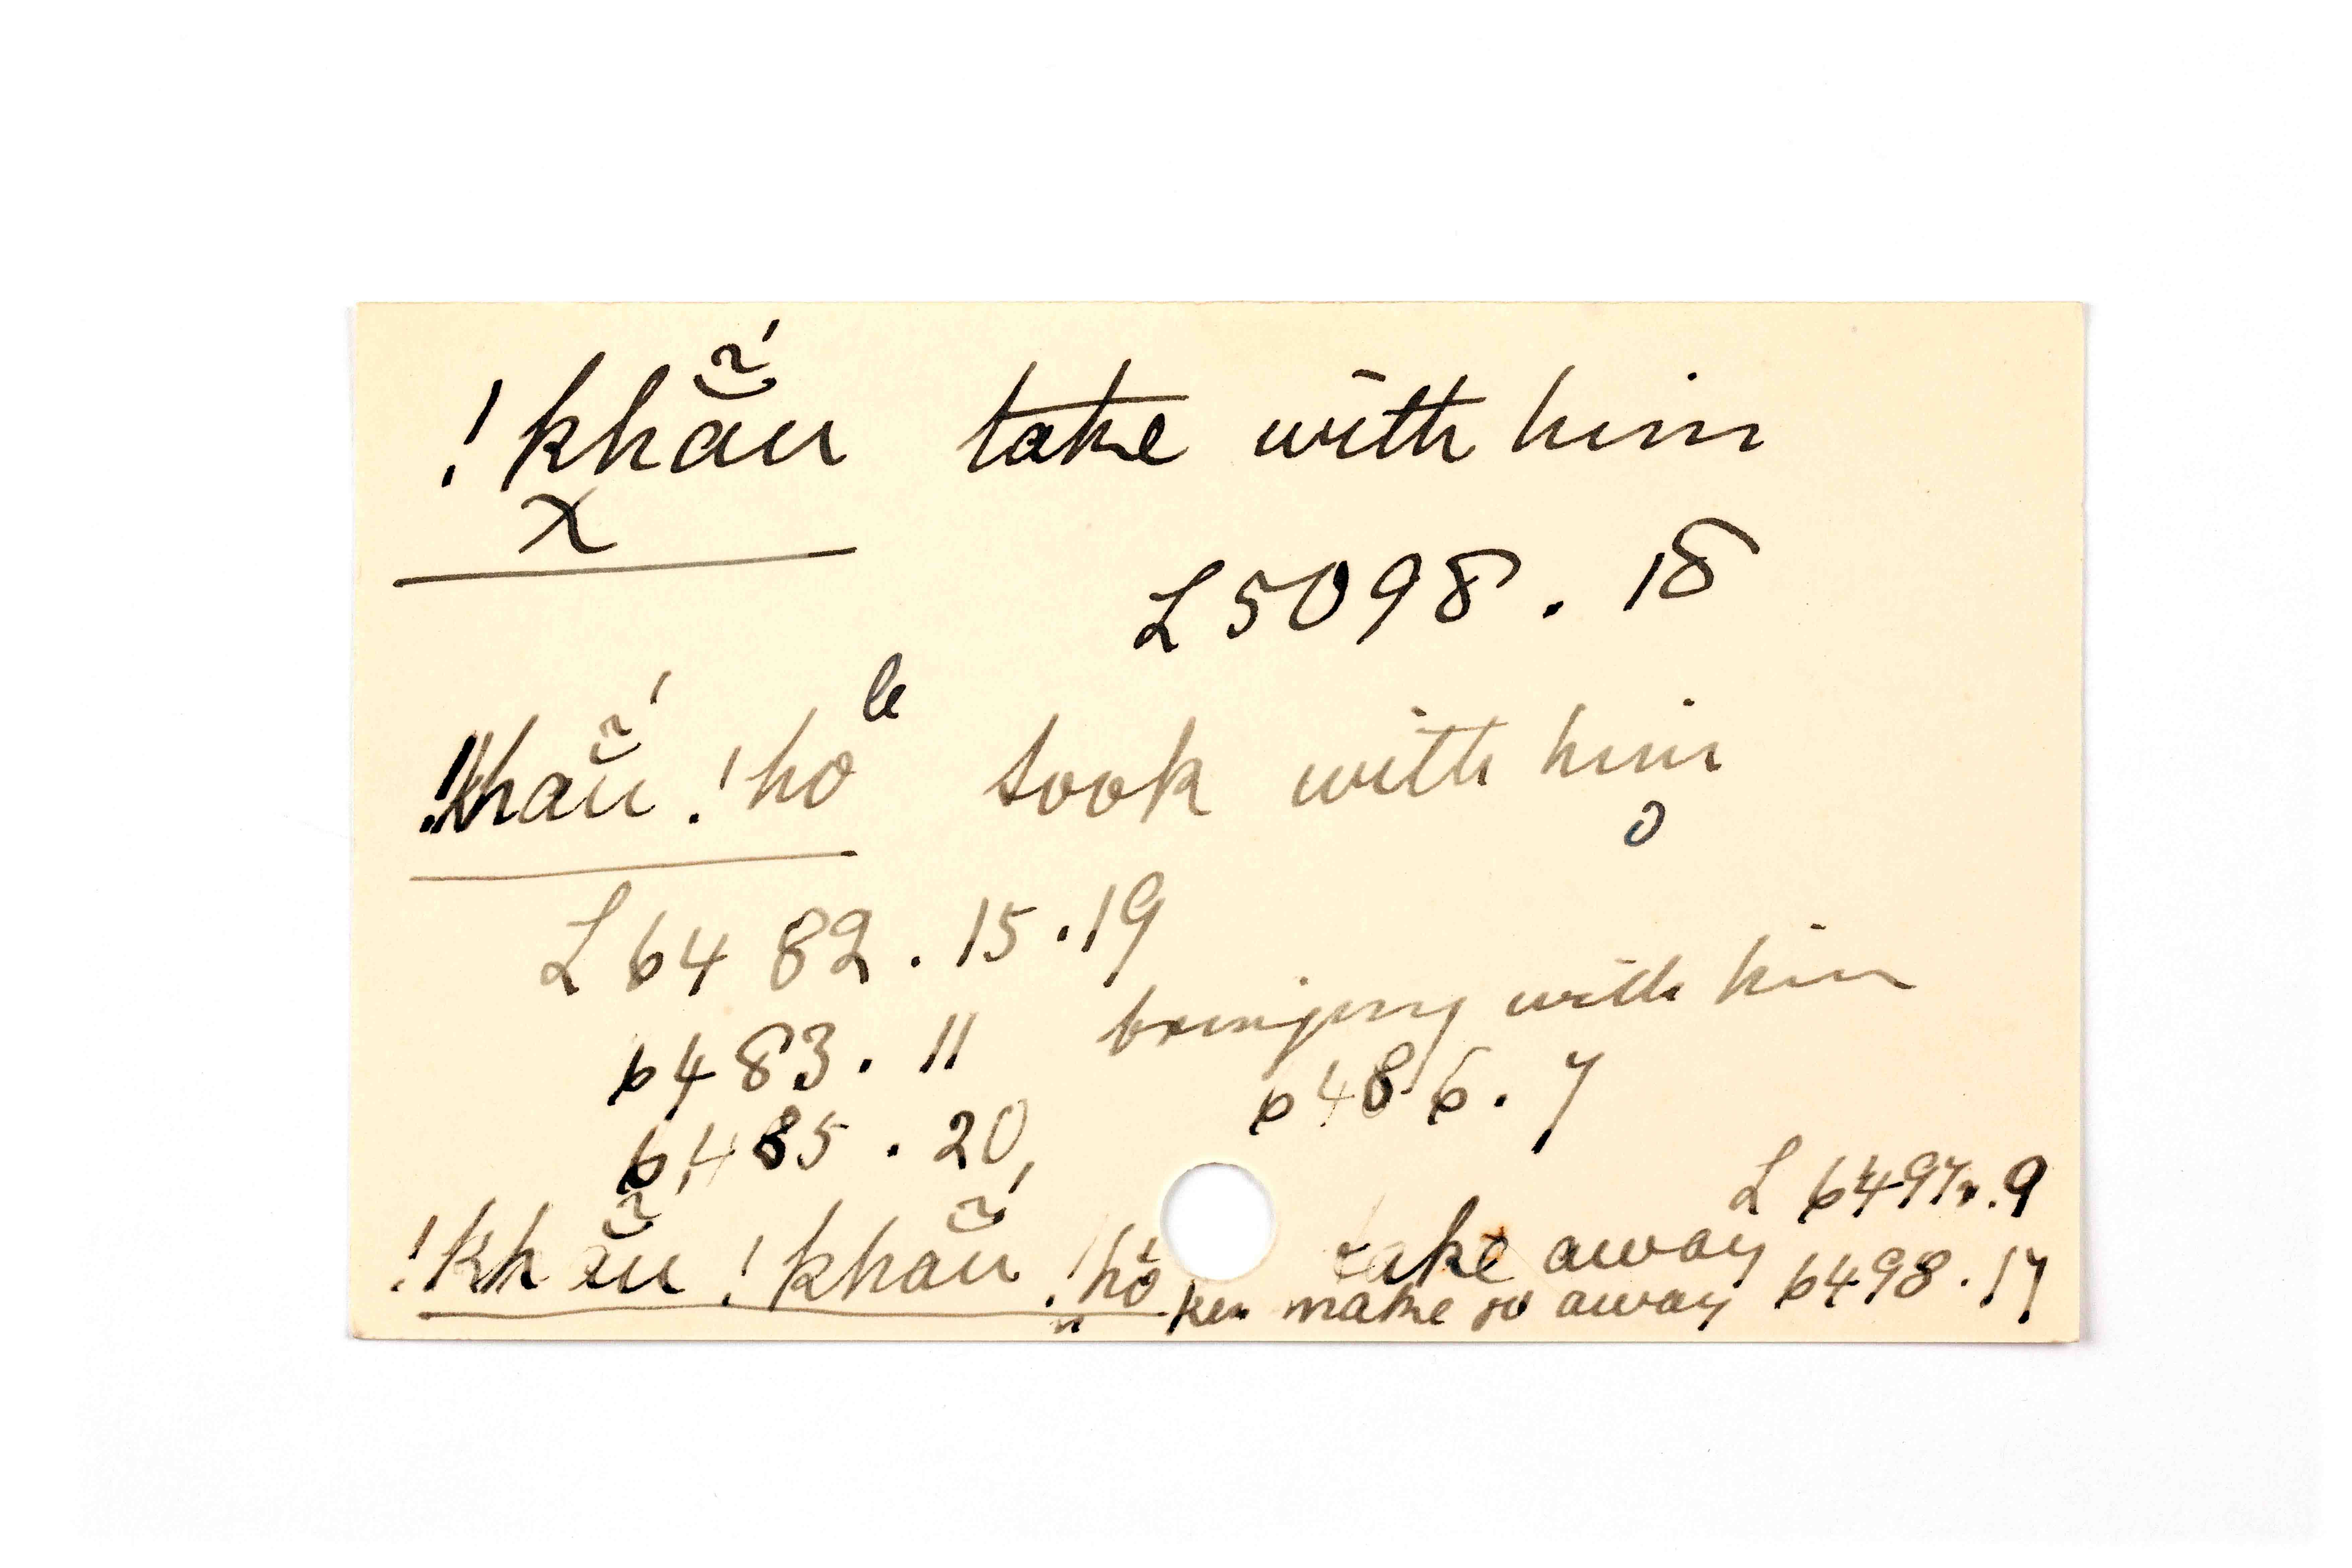 !khā̆̃ú take with him
x
L 5098. 18
!khā̆̃ú !ho took with him
L 6482. 15. 19
6483. 11 bringing with him
6485. 20, 6486. 7
L 6497. 9
!khā̆̃ú !khā̆̃ú !hó take away
make go away 6498. 17